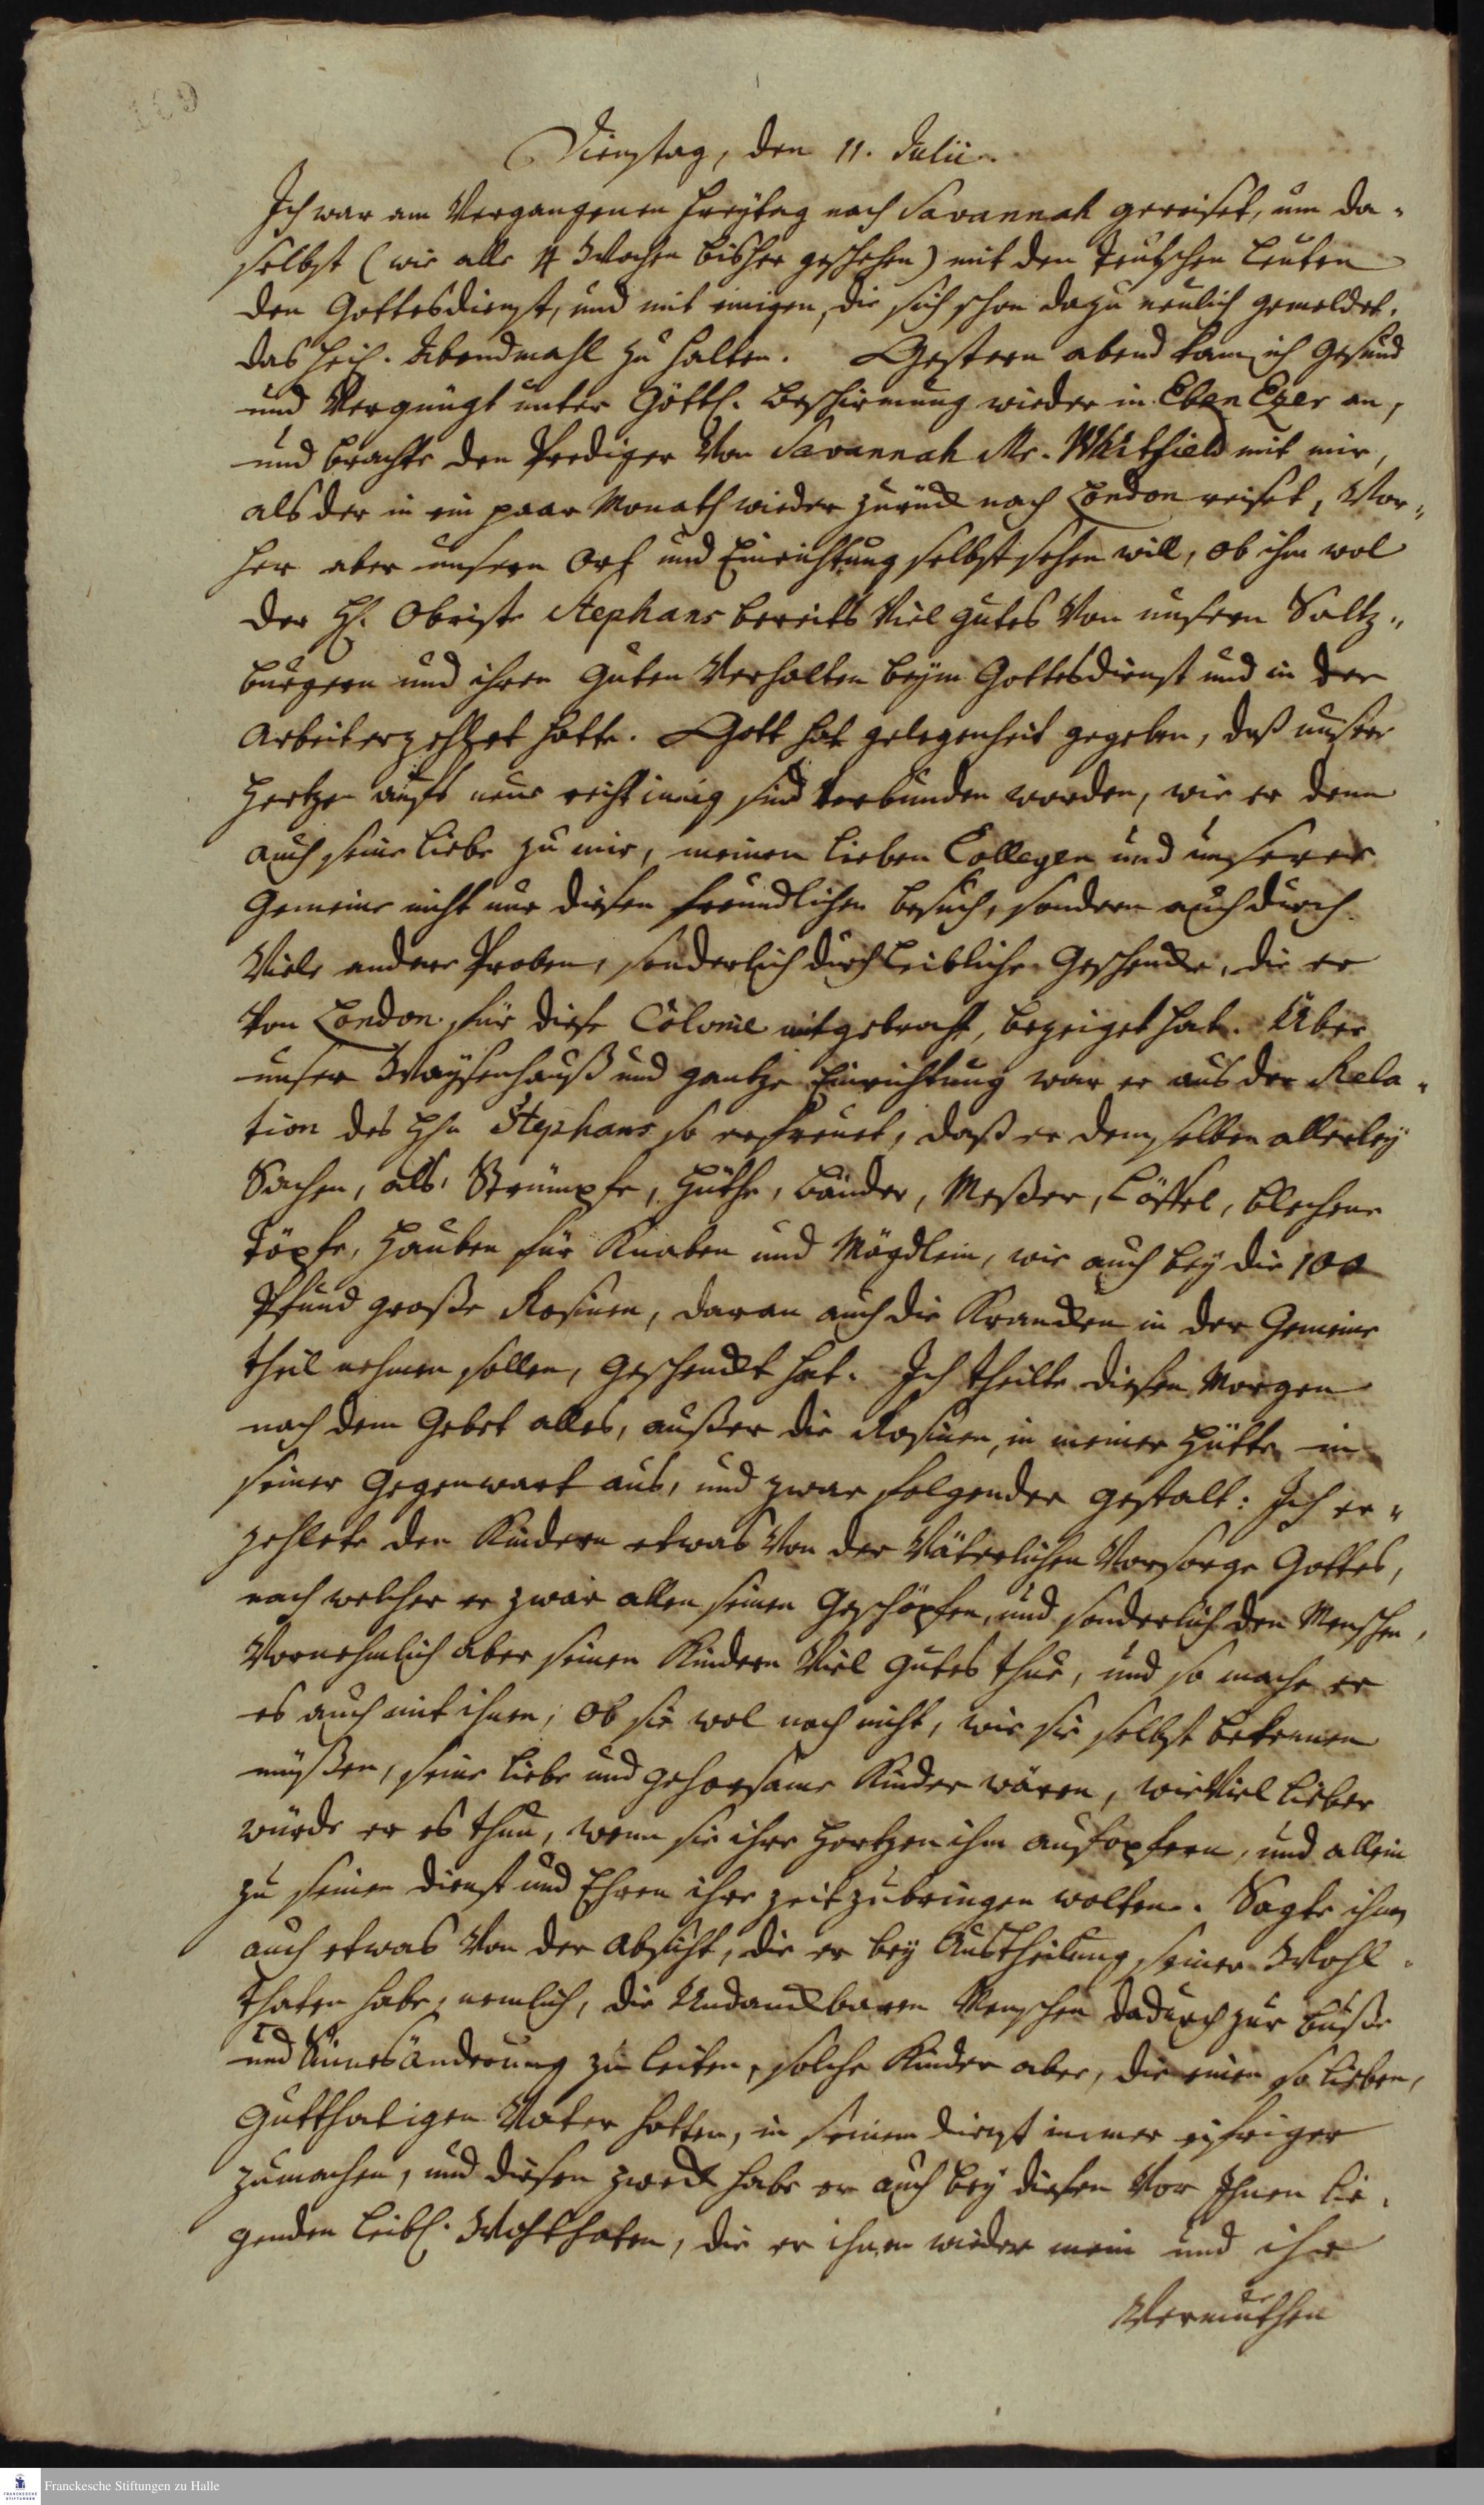 109
Dienstag, den 11. Julii.
Ich war am Vergangenen Freytag nach Savannah gereiset, um da-
selbst (wie alle 4 Wochen bisher geschehen) mit den Teutschen Leuten
den Gottesdienst, und mit einigen, die sich schon dazu neulich gemeldet,
das heil. Abendmahl zu halten. Gestern abend kam ich gesund
und Vergnügt unter Göttl. Beschirmung wieder in EbenEzer an,
und brachte den Prediger Von Savannah Mr. Whitfield mit mir,
als der in ein paar Monath wieder zurück nach London reiset, Vor-
her aber unsern Ort und Einrichtung selbst sehen will, ob ihm wol
der H. Obriste Stephans bereits Viel gutes Von unsern Saltz-
burgern und ihren guten Verhalten beym Gottesdienst und in der
Arbeit erzehlet hatte. Gott hat gelegenheit gegeben, daß unsere
Hertzen aufs neue recht innig sind verbunden worden, wie er denn
auch seine Liebe zu mir, meinen lieben Collegen und unserer
Gemeine nicht nur diesen freundlichen besuch, sondern auch durch
Viele andere Proben, sonderlich durch leibliche Geschencke, die er
Von London für diese Colonie mitgebracht, bezeiget hat. Über
unser Waysenhauß und gantze Einrichtung war er aus der Rela-
tion des Hn Stephans so erfreuet, daß er demselben allerley
Sachen, als, Strümpfe, Hüthe, Bänder, Meßer, Löffel, blecherne
Töpfe, Hauben für Knaben und Mägdlein, wie auch bey die 100
Pfund große Rosinen, daran auch die Krancken in der Gemeine
theil nehmen sollen, geschenckt hat. Ich theilte diesen Morgen
nach dem Gebet alles, außer die Rosinen, in meiner Hütte in
seiner Gegenwart aus, und zwar folgender gestalt: Ich er-
zehlete den Kindern etwas Von der Väterlichen Vorsorge Gottes,
nach welcher er zwar allen seinen Geschöpfen, und sonderlich den Menschen,
Vornehmlich aber seinen Kindern Viel gutes thue, und so mache er
es auch mit ihnen, ob sie wol noch nicht, wie sie selbst bekennen
müßen, seine liebe und gehorsame Kinder wären, wie Viel lieber
würde er es thun, wenn sie ihre Hertzen ihm aufopfern, und allein
zu seinen dienst und Ehren ihre zeit zubringen wolten. Sagte ihnen
auch etwas Von der Absicht, die er bey Austheilung seiner Wohl-
thaten habe, nemlich, die Undanckbaren Menschen dadurch zur Buße
und Sinnesänderung zu leiten, solche Kinder aber, die einen so lieben,
Gutthätigen Vater hatten, in seinem dienst immer eifriger
zumachen, und diesen zweck habe er auch bey diesen Vor Ihnen lie-
genden leibl. Wohlthaten, die er ihnen wieder mein und ihr
Vermuthen
Franckesche Stiftungen zu Halle